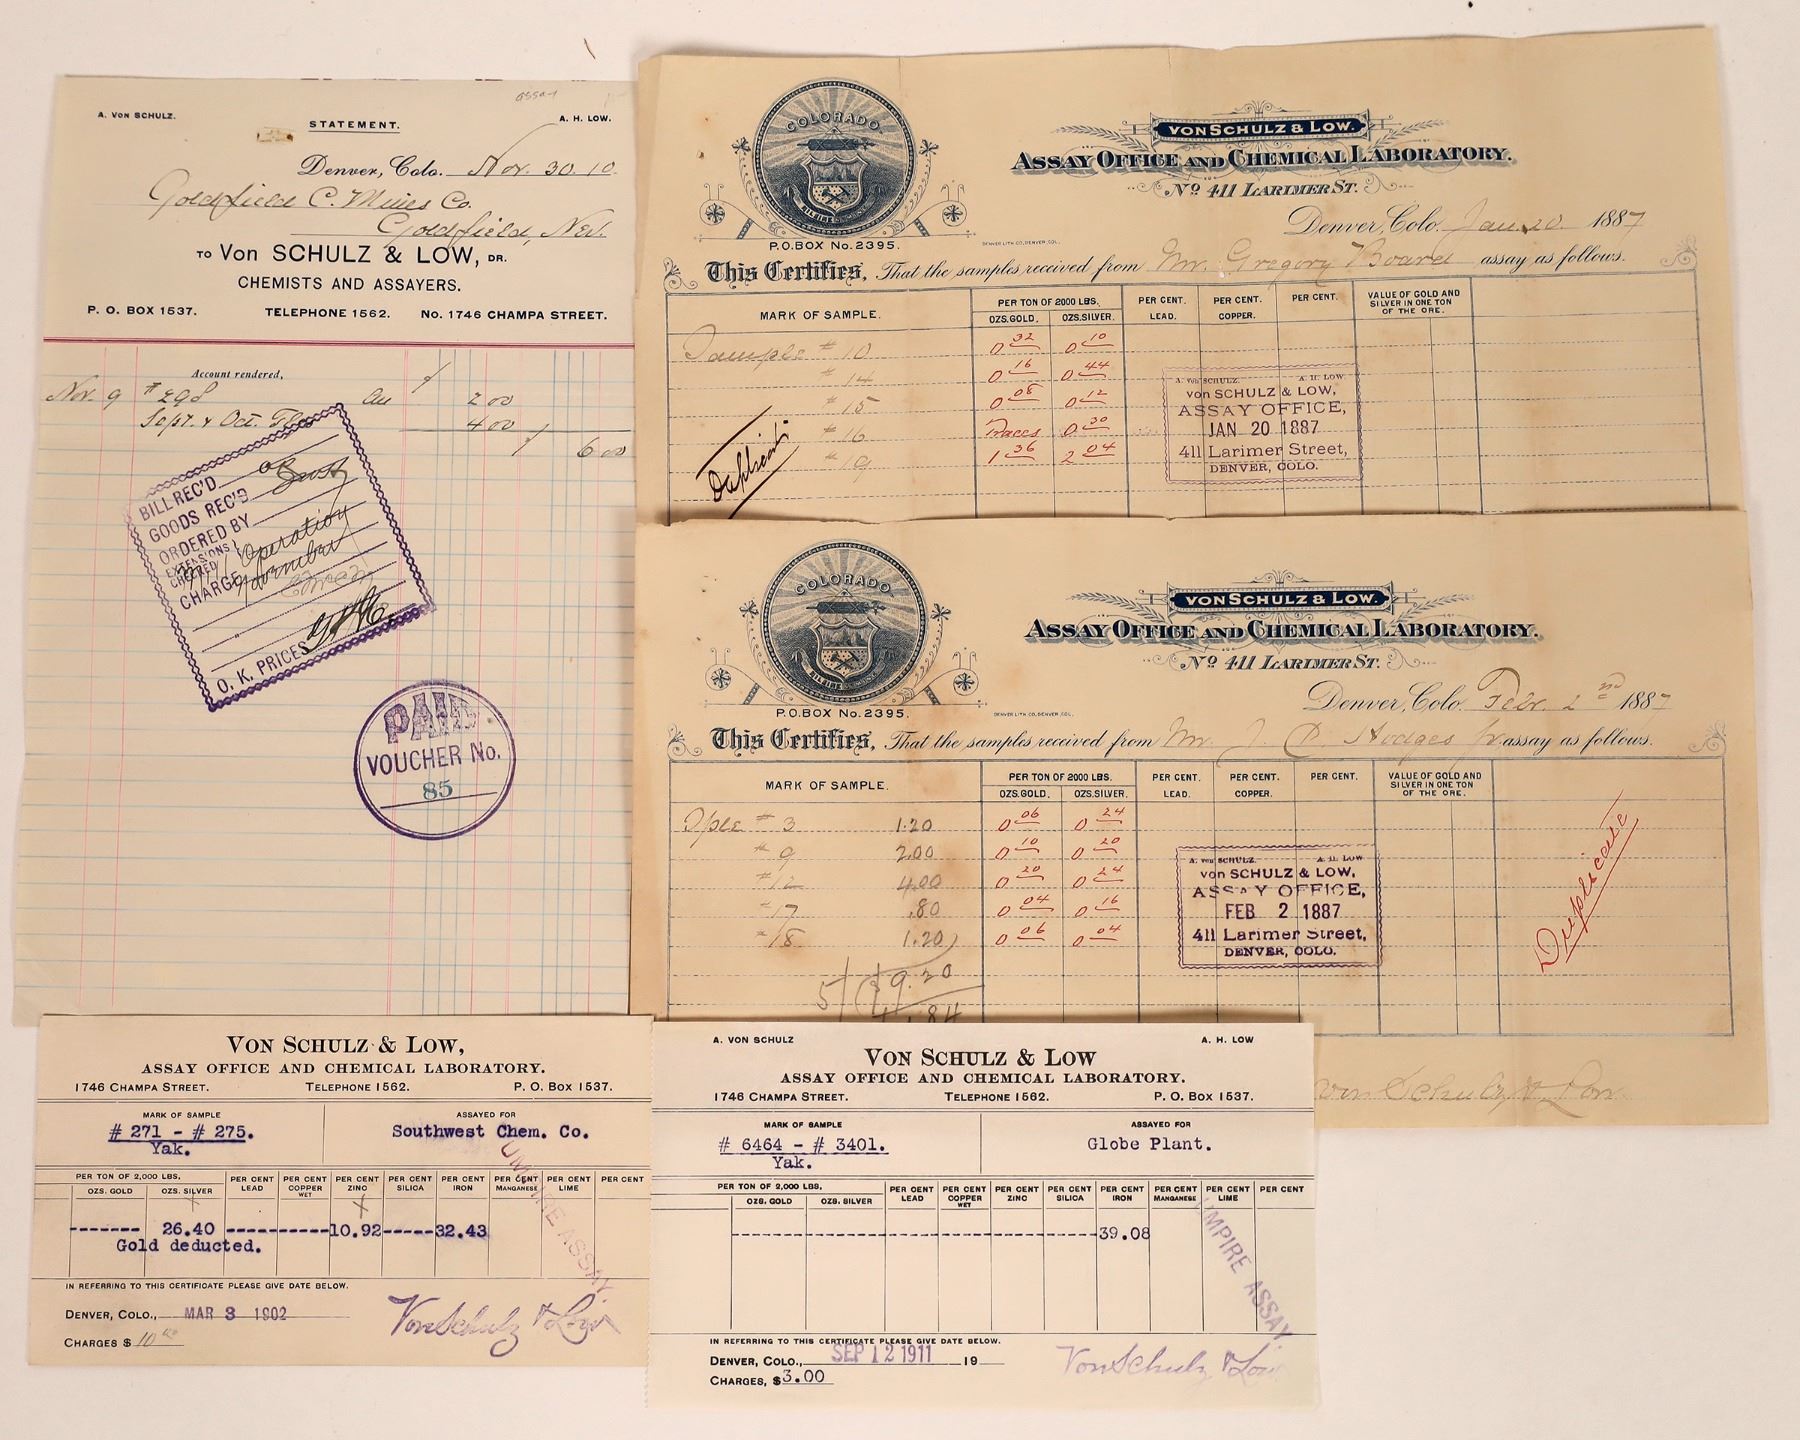 assay
A. VON SCHULZ.
STATEMENT.
A. H. LOW.
Denver, Colo. Nov. 30 10
Goldfield C. Mines Co.
Goldfield, Nev.
TO VON SCHULZ & LOW, DR.
CHEMISTS AND ASSAYERS.
P. O. BOX 1537. TELEPHONE 1562. No. 1746 CHAMPA STREET.
Account rendered,
Nov. 9 # 298 Au 2 00
Sept. & Oct. 4 00
6 00
BILL REC'D
GOODS REC'D
ORDERED BY
EXTENSIONS
CHECKED
Operation
CHARGE
O. K. PRICES
PAID
VOUCHER No.
85
COLORADO
NIL SINE
P.O. BOX No. 2395.
DENVER LITH CO, DENVER, COL.
VON SCHULZ & LOW.
ASSAY OFFICE AND CHEMICAL LABORATORY.
No 411 LARIMER ST.
Denver, Colo. Jan. 20 1887
This Certifies, That the samples received from Mr. Gregory Board assay as follows.
MARK OF SAMPLE. PER TON OF 2000 LBS. PER CENT. PER CENT. PER CENT. VALUE OF GOLD AND
OZS. GOLD. OZS. SILVER. LEAD. COPPER. SILVER IN ONE TON
OF THE ORE.
Sample # 10 0 32 0 10
# 14 0 16 0 44
# 15 0 08 0 12
# 16 Traces 0 30
# 19 1 36 2 04
Duplicate
A. von SCHULZ. A. H. LOW
von SCHULZ & LOW,
ASSAY OFFICE,
JAN 20 1887
411 Larimer Street,
DENVER, COLO.
COLORADO
NIL SINE
P.O. BOX No. 2395.
DENVER LITH CO, DENVER, COL.
VON SCHULZ & LOW.
ASSAY OFFICE AND CHEMICAL LABORATORY.
No 411 LARIMER ST.
Denver, Colo. Febr. 2nd 1887
This Certifies, That the samples received from Mr. J. C. Hodges Jr. assay as follows.
MARK OF SAMPLE. PER TON OF 2000 LBS. PER CENT. PER CENT. PER CENT. VALUE OF GOLD AND
OZS. GOLD. OZS. SILVER. LEAD. COPPER. SILVER IN ONE TON
OF THE ORE.
Sple # 3 1.20 0 06 0 24
# 9 2.00 0 10 0 20
# 12 4.00 0 20 0 24
# 17 .80 0 04 0 16
# 18 1.20 0 06 0 04
5 9.20
1.84
A. von SCHULZ. A. H. LOW
von SCHULZ & LOW,
ASSAY OFFICE,
FEB 2 1887
411 Larimer Street,
DENVER, COLO.
Duplicate
von Schulz & Low.
VON SCHULZ & LOW,
ASSAY OFFICE AND CHEMICAL LABORATORY.
1746 CHAMPA STREET. TELEPHONE 1562. P. O. BOX 1537.
MARK OF SAMPLE ASSAYED FOR
# 271 - # 275. Southwest Chem. Co.
Yak.
PER TON OF 2,000 LBS. PER CENT LEAD PER CENT COPPER WET PER CENT ZINC PER CENT SILICA PER CENT IRON PER CENT MANGANESE PER CENT LIME PER CENT
OZS. GOLD OZS. SILVER
------- 26.40 ----------10.92-----32.43
Gold deducted.
UMPIRE ASSAY
IN REFERRING TO THIS CERTIFICATE PLEASE GIVE DATE BELOW.
DENVER, COLO., MAR 3 1902
CHARGES $ 10 00
Von Schulz & Low
A. VON SCHULZ A. H. LOW
VON SCHULZ & LOW
ASSAY OFFICE AND CHEMICAL LABORATORY.
1746 CHAMPA STREET. TELEPHONE 1562. P. O. BOX 1537.
MARK OF SAMPLE ASSAYED FOR
# 6464 - # 3401. Globe Plant.
Yak.
PER TON OF 2,000 LBS. PER CENT LEAD PER CENT COPPER WET PER CENT ZINC PER CENT SILICA PER CENT IRON PER CENT MANGANESE PER CENT LIME PER CENT
OZS. GOLD OZS. SILVER
39.08
UMPIRE ASSAY
IN REFERRING TO THIS CERTIFICATE PLEASE GIVE DATE BELOW.
DENVER, COLO., SEP 12 1911 19
CHARGES, $3.00
Von Schulz & Low